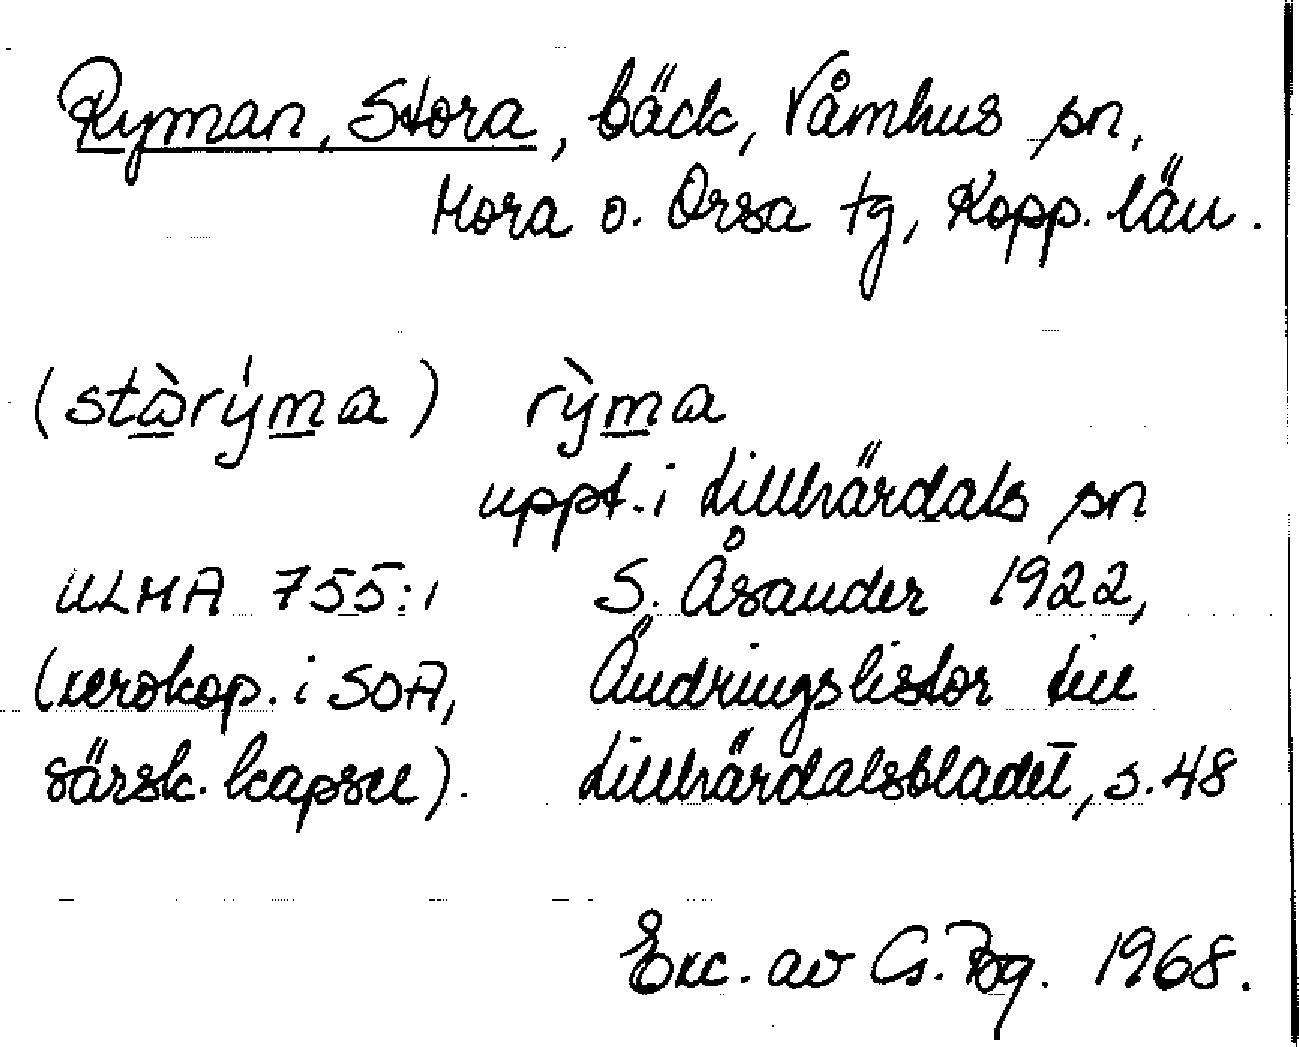 Ryman, Stora, bäck, Våmhus sn,
Mora o. Orsa tg, Kopp. län.
(stàrýma) rỳma
uppt. i Lillhärdals sn
ULMA 755:1 S. Åsander 1922,
(xerokop. i SOA, Ändringslistor till
särsk. kapsel). Lillhärdalsbladet, s. 48
Exc. av G. 1968.